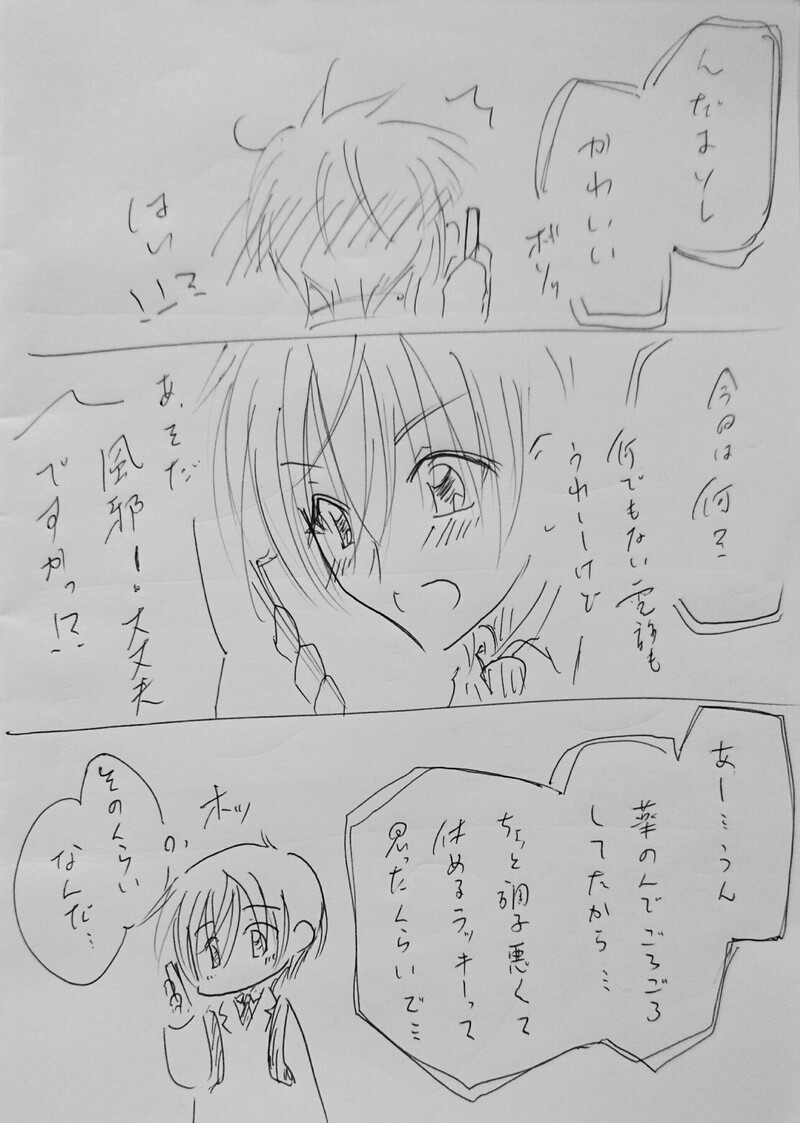 んだよソレ
かわいい
ボソッ
はい!!?
今日は何?
何でもない電話も
うれしーけど
あ、そだ
風邪ー。大丈夫
ですかっ!?
あー…うん
薬のんでごろごろ
してたから…
ちょっと調子悪くて
休めるラッキーって
思ったくらいで…
ホッ
そのくらい
なんだ…